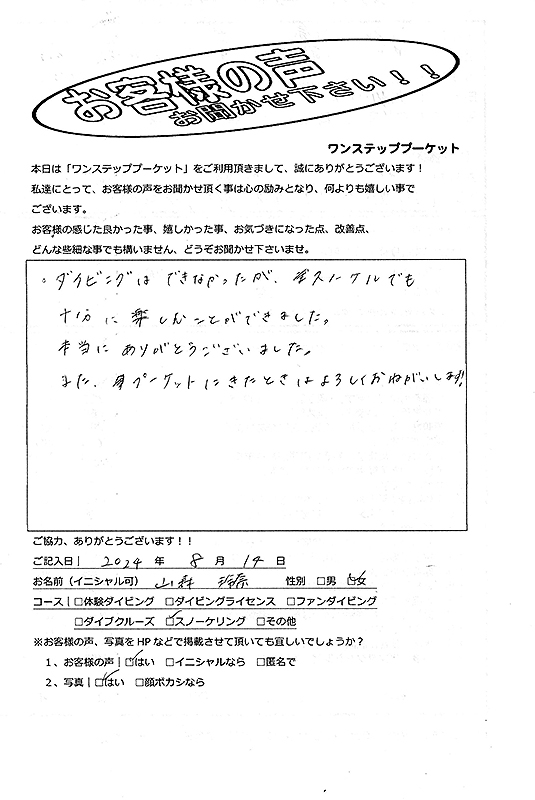 お客様の声
お聞かせ下さい！！
ワンステッププーケット
本日は「ワンステッププーケット」をご利用頂きまして、誠にありがとうございます！
私達にとって、お客様の声をお聞かせ頂く事は心の励みとなり、何よりも嬉しい事で
ございます。
お客様の感じた良かった事、嬉しかった事、お気づきになった点、改善点、
どんな些細な事でも構いません、どうぞお聞かせ下さいませ。
。ダイビングは できなかったが、スノーケルでも
十分に 楽しむことができました。
本当に ありがとうございました。
また、プーケットにきたときはよろしくおねがいします!
ご協力、ありがとうございます！！
ご記入日| 2024 年 8 月 14 日
お名前（イニシャル可） 山森 性別 □男 □女
コース|□体験ダイビング □ダイビングライセンス □ファンダイビング
□ダイブクルーズ □スノーケリング □その他
※お客様の声、写真をHPなどで掲載させて頂いても宜しいでしょうか？
1、お客様の声|□はい □イニシャルなら □匿名で
2、写真|□はい □顔ボカシなら